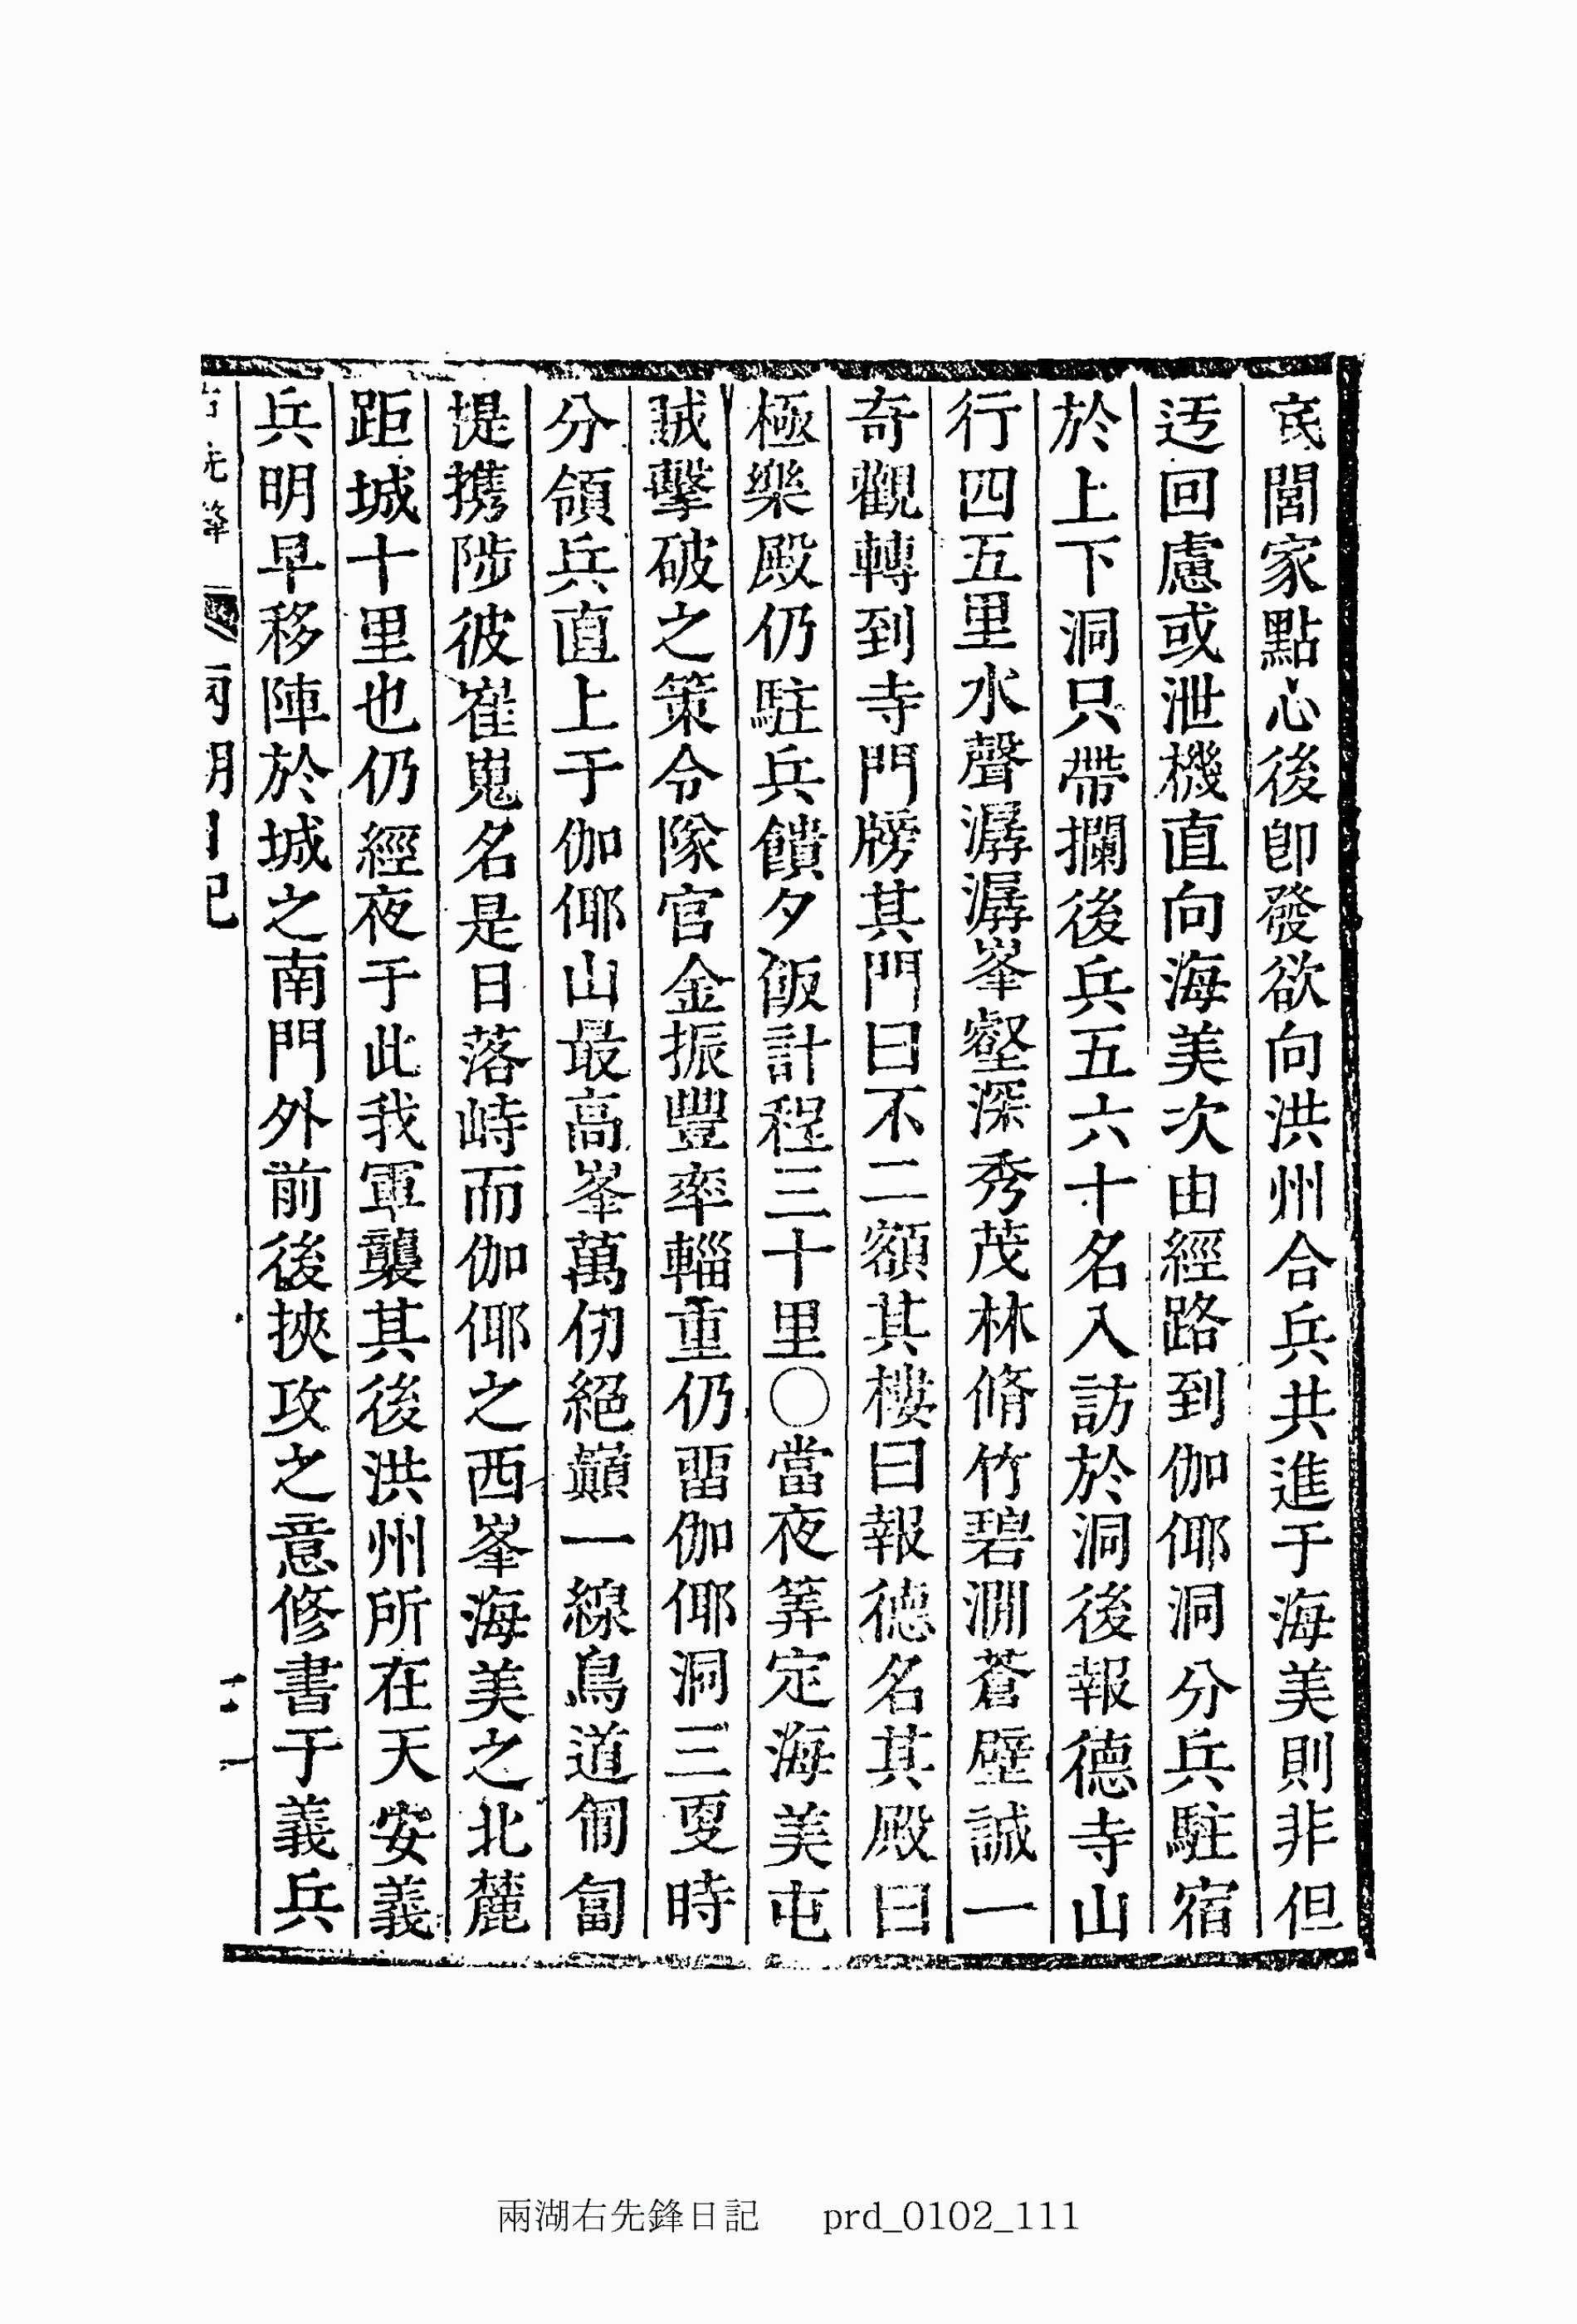 家點心後卽發欲向洪州合兵共進于海美則非但
迃回慮或泄機直向海美次由經路到伽倻洞分兵駐宿
於上下洞只帶攔後兵五六十名入訪於洞後報德寺山
行四五里水聲潺潺峯壑深秀茂林脩竹碧澗蒼壁誠一
奇觀轉到寺門牓其門曰不二額其樓曰報德名其殿曰
極樂殿仍駐兵饋夕飯計程三十里○當夜筭定海美屯
賊擊破之策令隊官金振豐率輜重仍畱伽倻洞三更時
分領兵直上于伽倻山最高峯萬仞絕巓一線鳥道匍匐
提携陟彼崔嵬名是日落峙而伽倻之西峯海美之北麓
距城十里也仍經夜于此我軍襲其後洪州所在天安義
兵明早移陣於城之南門外前後挾攻之意修書于義兵
右先鋒 兩湖日記
兩湖右先鋒日記 prd_0102_111